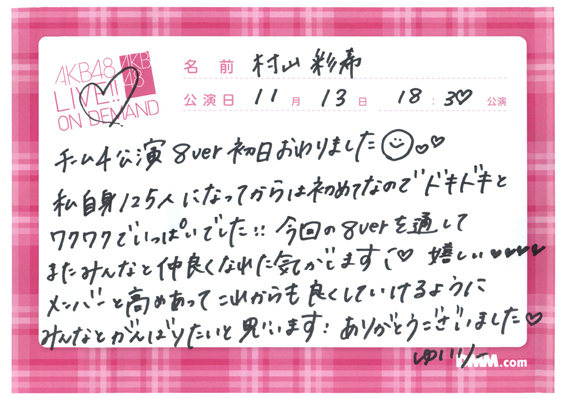 AKB48
LIVE!!
ON DEMAND
AKB
48
名前 村山彩希
公演日 11月13日 18:30公演
チーム4公演8ver初日おわりました
私自身125人になってからは初めてなのでドキドキと
ワクワクでいっぱいでした!! 今回の8verを通して
またみんなと仲良くなれた気がします 嬉しい
メンバーと高めあってこれからも良くしていけるように
みんなとがんばりたいと思います! ありがとうございました
ゆいりー
DMM.com